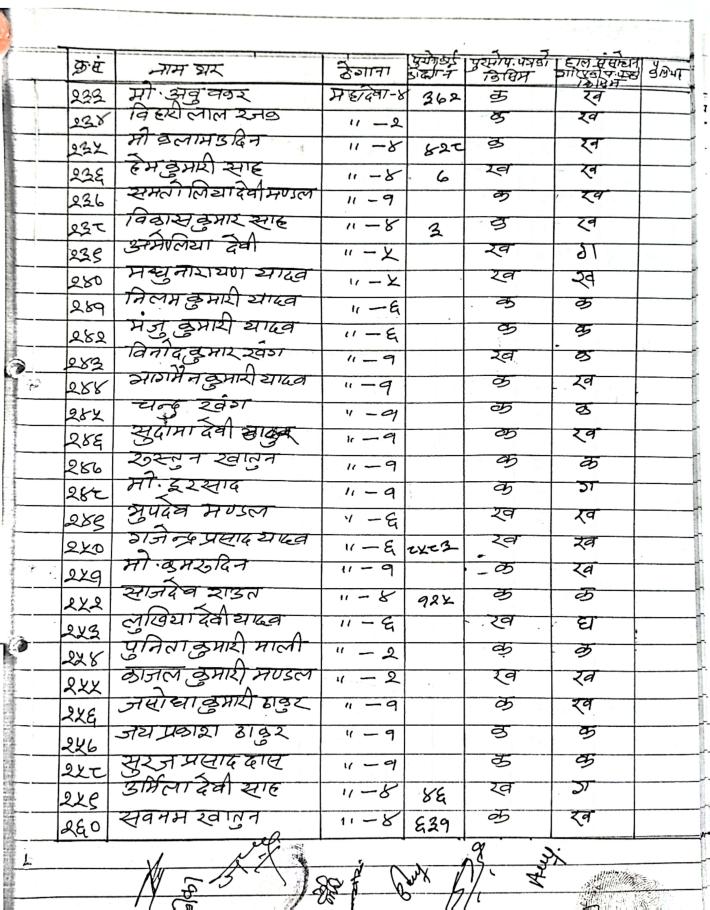 क्र.सं नाम थर ठेगाना पुरानो कार्ड
२३३ मो. अवु वकर महादेवा-४ ३६२ क ख
२३४ विहारी लाल रजक " -२ क ख
२३५ मो कलामउदिन " -४ ४२८ क ख
२३६ हेम कुमारी साह " -४ ७ ख ख
२३७ समतोलिया देवी मण्डल " -१ क ख
२३८ विकास कुमार साह " -४ ३ क ख
२३९ अमेलिया देवी " -५ ख ग
२४० मधु नारायण यादव " -५ ख ख
२४१ निलम कुमारी यादव " -६ क क
२४२ मंजु कुमारी यादव " -६ क क
२४३ विनोद कुमार खंग " -१ ख क
२४४ भागमैन कुमारी यादव " -१ क ख
२४५ चन्दु खंग " -१ क क
२४६ सुदामा देवी ठाकुर " -१ क ख
२४७ रुस्तुन खातुन " -१ क क
२४८ मो. इरसाद " -१ क ग
२४९ भुपदेव मण्डल " -६ ख ख
२५० गजेन्द्र प्रसाद यादव " -६ ८५८३ ख ख
२५१ मो. कुमरुदिन " -१ क ख
२५२ साजदेव राउत " -४ १२५ क क
२५३ लुखिया देवी यादव " -६ ख घ
२५४ पुनिता कुमारी माली " -२ क क
२५५ काजल कुमारी मण्डल " -२ ख ख
२५६ जसोधा कुमारी ठाकुर " -१ क ख
२५७ जय प्रकाश ठाकुर " -१ क क
२५८ सुरज प्रसाद दास " -१ क क
२५९ उर्मिला देवी साह " -४ ४६ ख ग
२६० सवनम खातुन " -४ ६३१ क ख